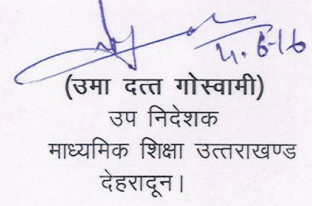 (उमा दत्त गोस्वामी)
उप निदेशक
माध्यमिक शिक्षा उत्तराखण्ड
देहरादून।